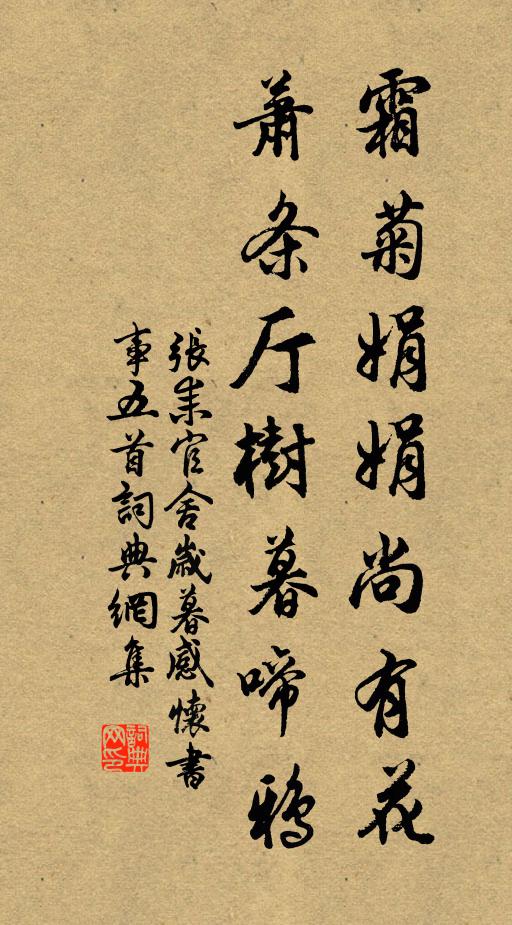 霜菊娟娟尚有花
萧条厅樹暮啼鴉
張耒官舍歲暮感懷書
事五首詞典網集
詞典
网印